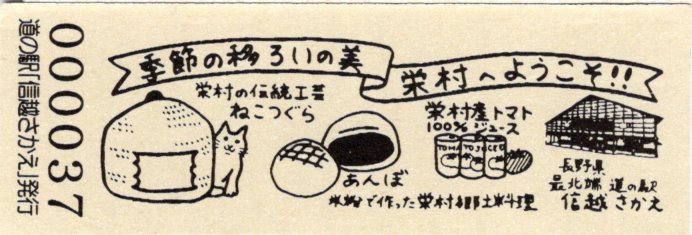 000037
道の駅「信越さかえ」発行
季節の移ろいの美
栄村へようこそ!!
栄村の伝統工芸
ねこつぐら
あんぼ
米粉で作った栄村郷土料理
栄村産トマト
100%ジュース
TOMATO JUICE
長野県
最北端 道の駅
信越さかえ